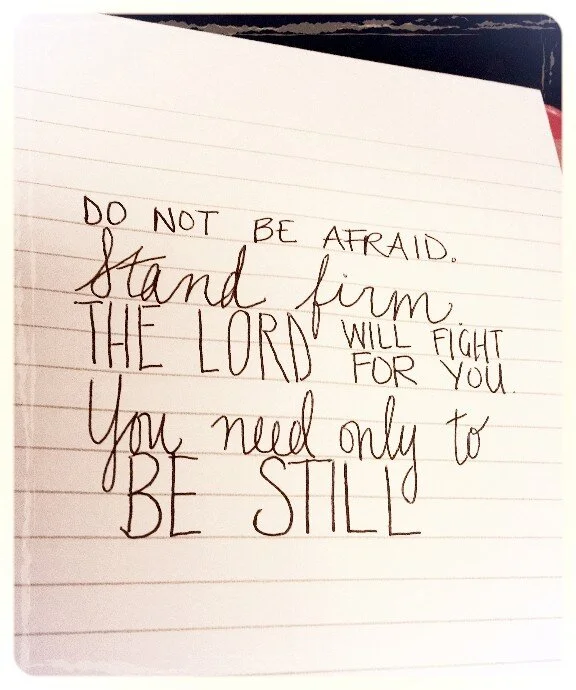 DO NOT BE AFRAID.
Stand firm.
THE LORD WILL FIGHT
FOR YOU.
You need only to
BE STILL